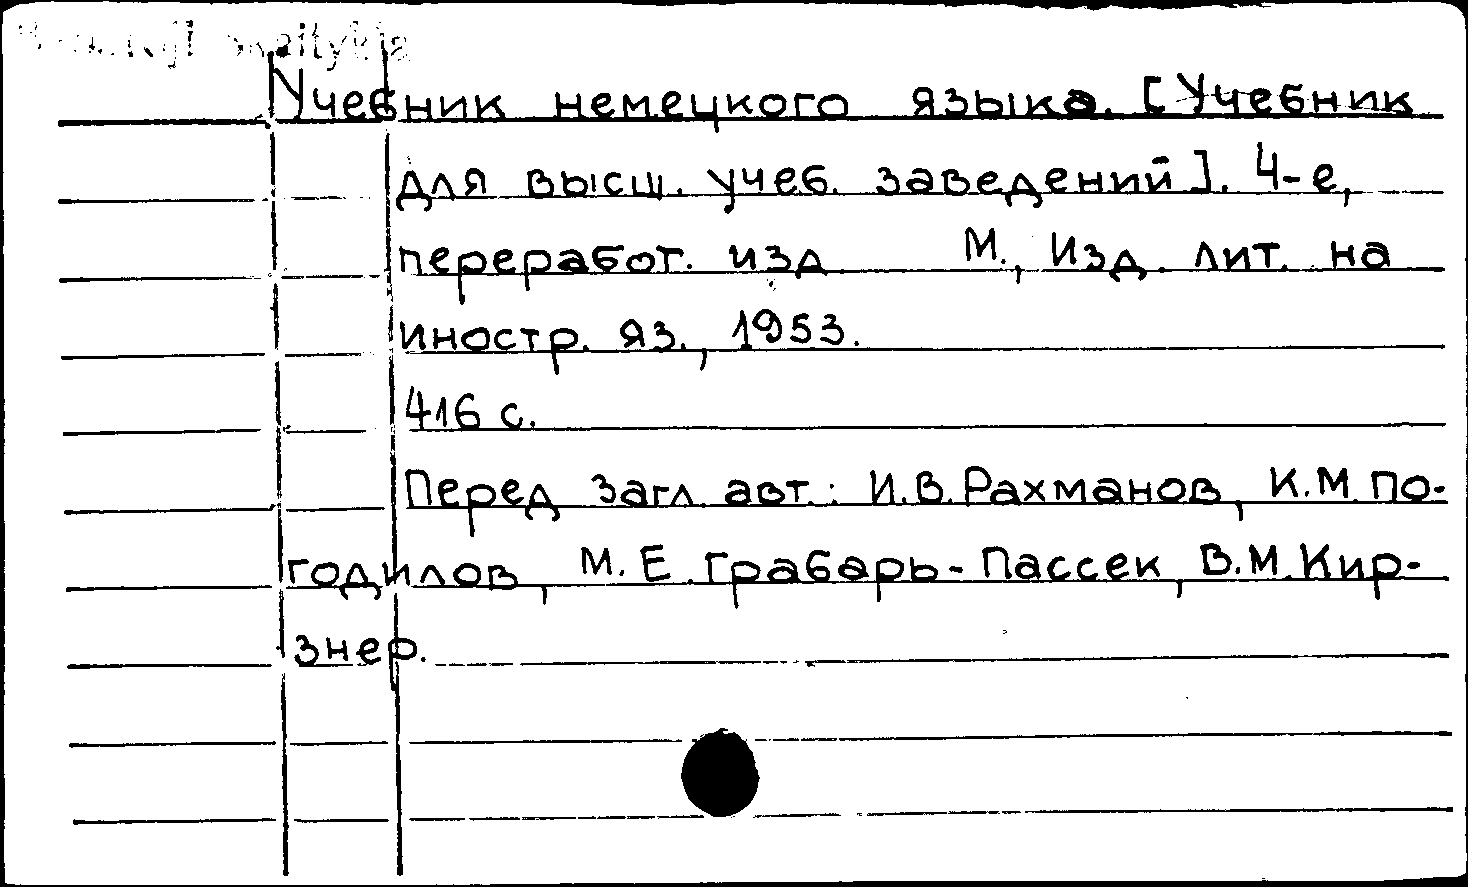 Учебник немецкого языка. [Учебник
для высш. учеб. заведений]. 4-е,
переработ. изд М., Изд. лит. на
иностр. яз., 1953.
416 с.
Перед загл. авт.: И.В. Рахманов, К.М. По-
годилов, М.Е. Грабарь-Пассек, В.М. Кир-
знер.